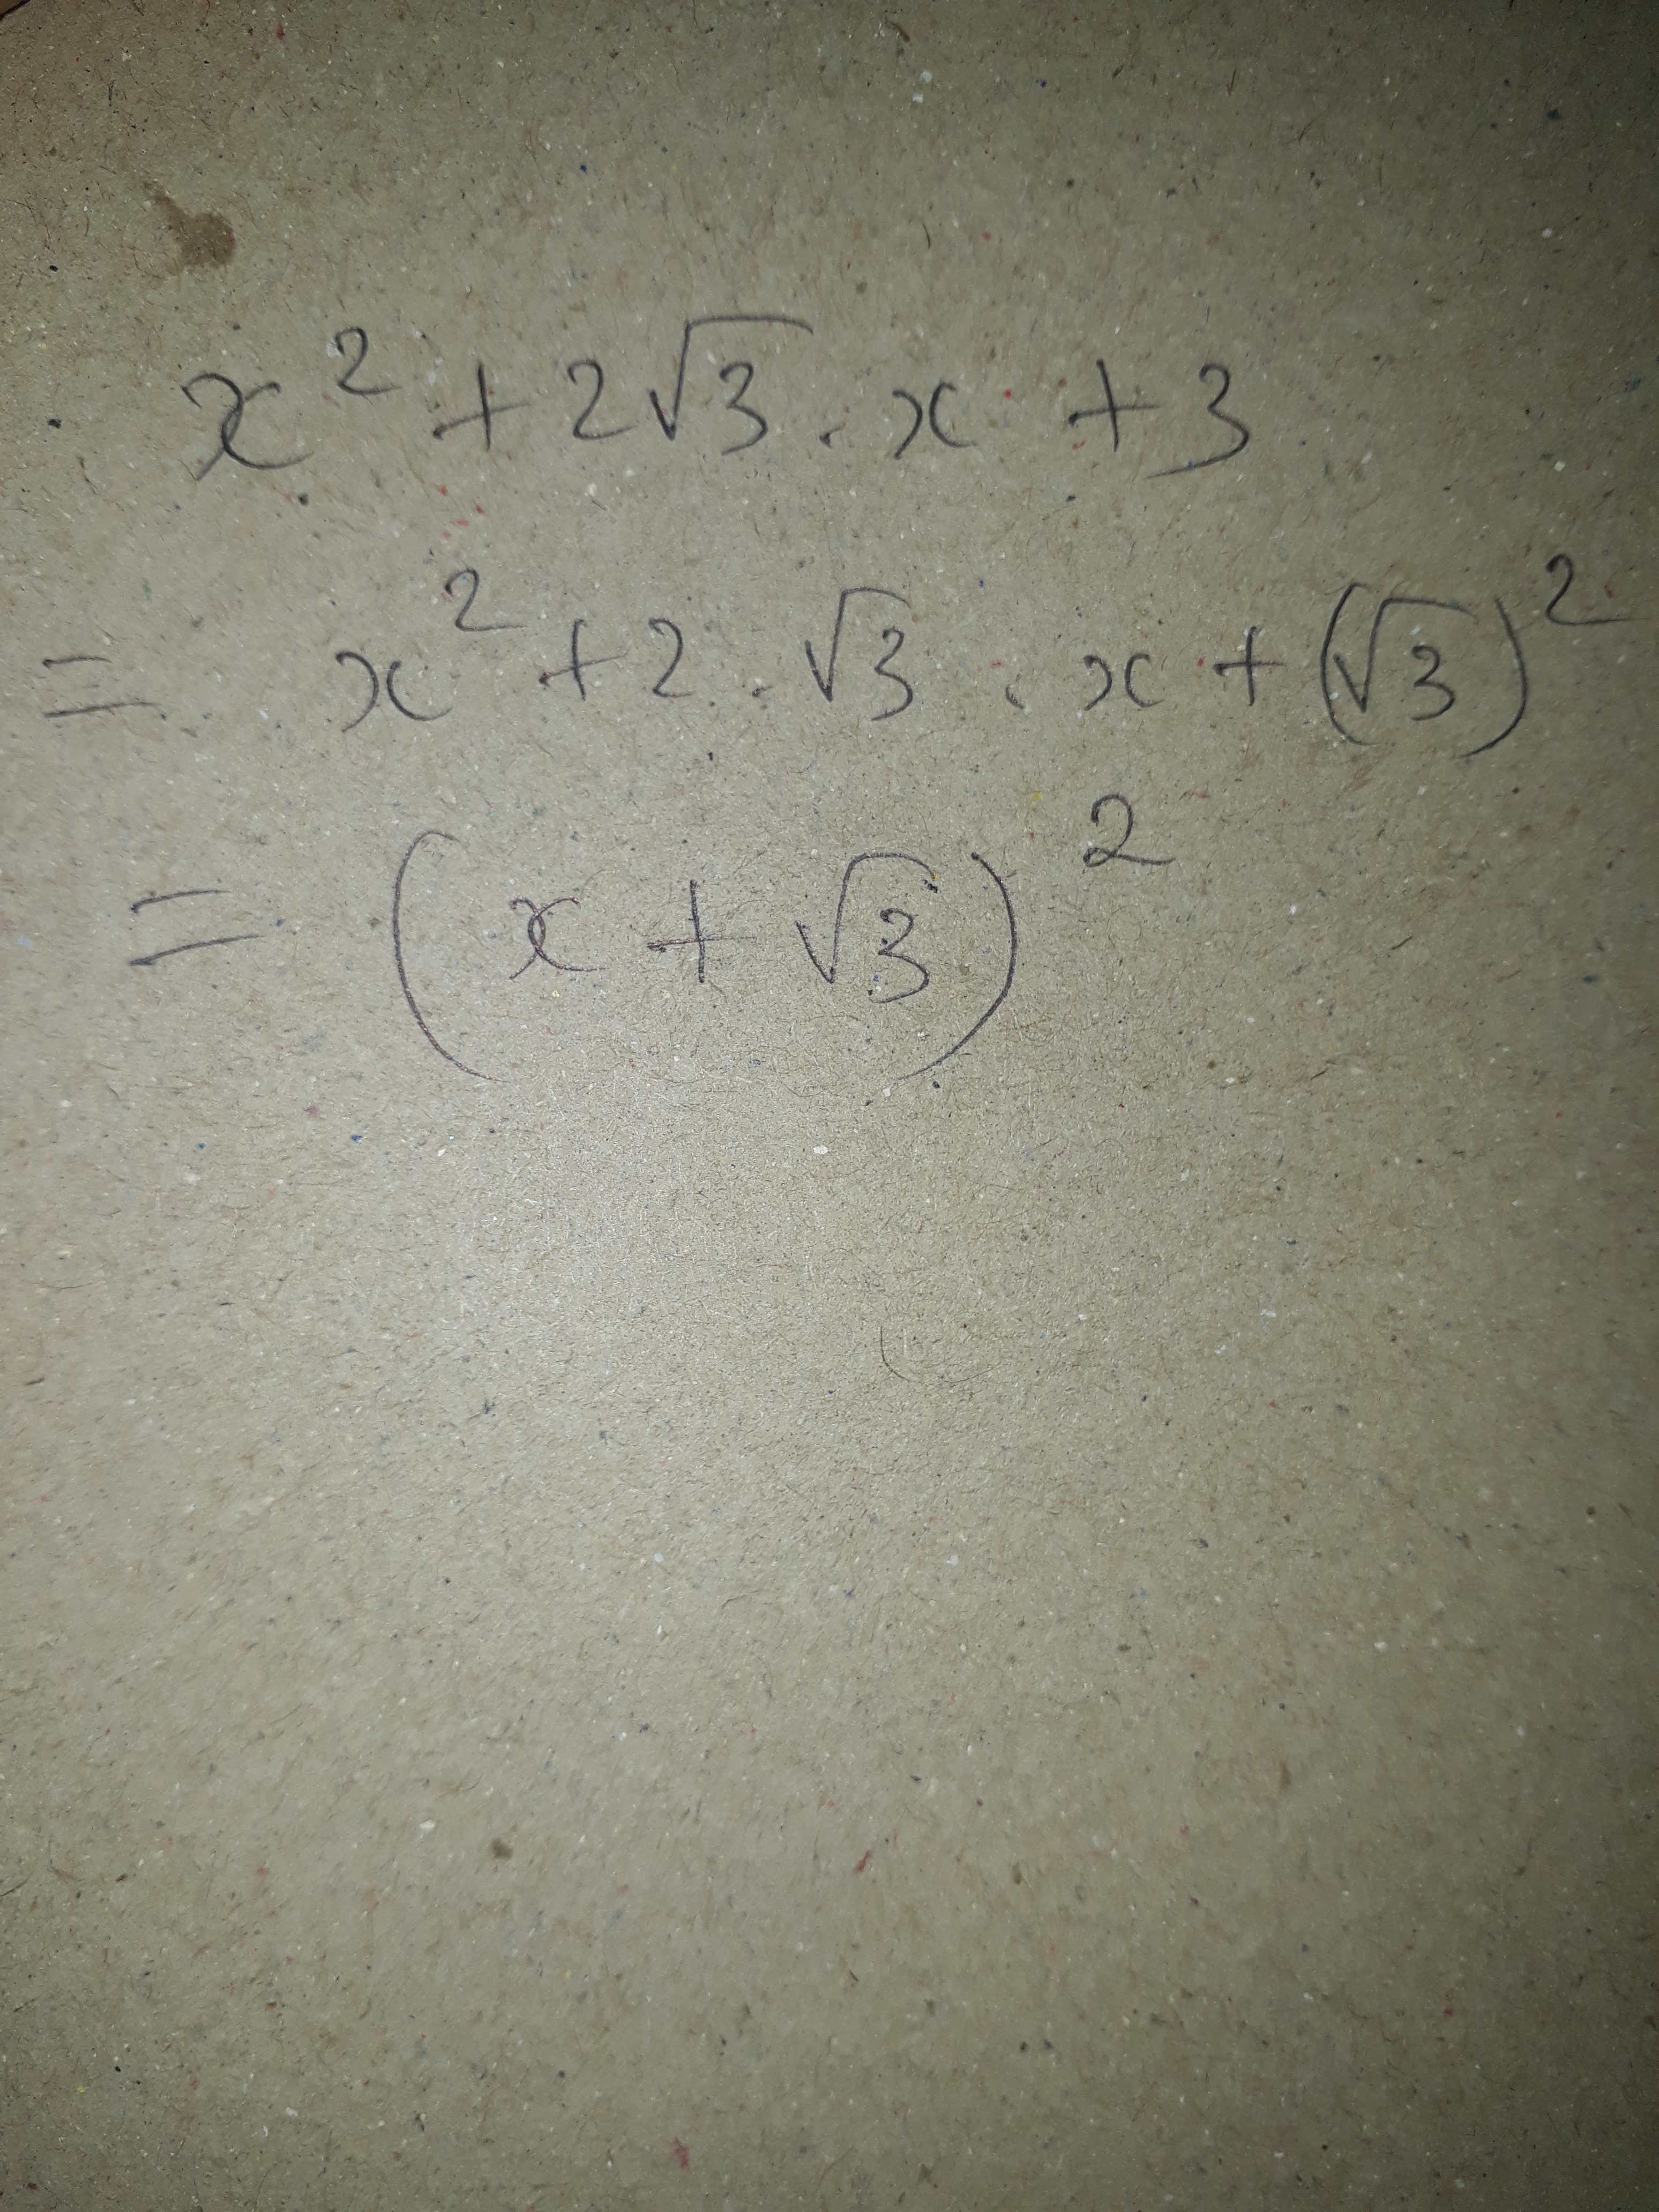 x² + 2√3 . x + 3
= x² + 2 . √3 . x + (√3)²
= (x + √3)²